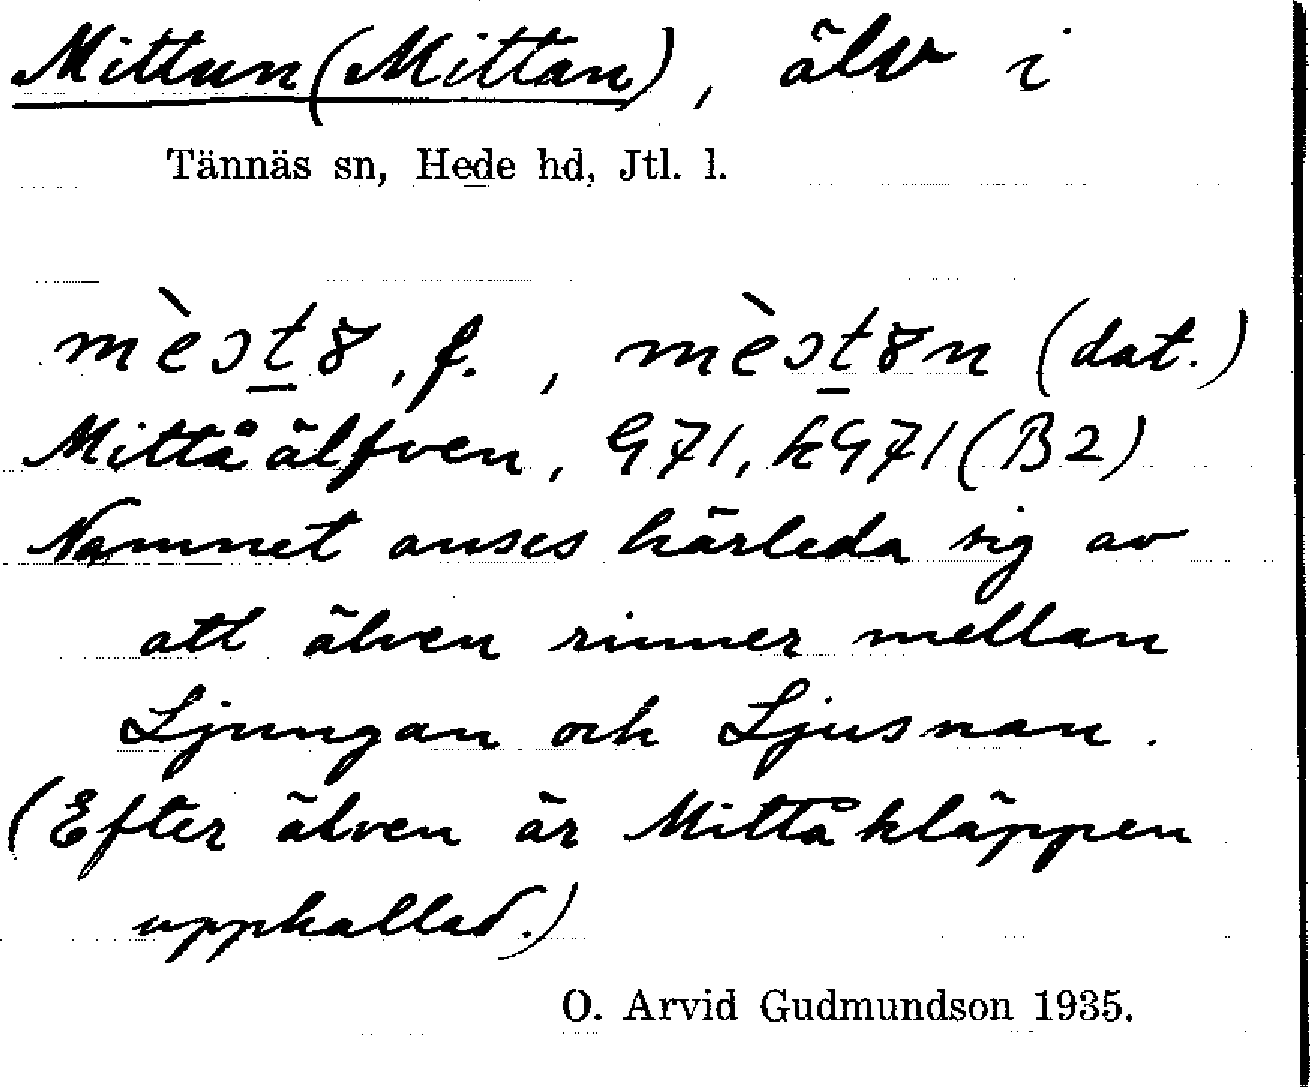 Mittun (Mittan), älv i
Tännäs sn, Hede hd, Jtl. l.
f., (dat.)
Mittåälfven, G71, kG71 (B2)
Namnet anses härleda sig av
att älven rinner mellan
Ljungan och Ljusnan.
(Efter älven är Mittåkläppen
uppkallad.)
O. Arvid Gudmundson 1935.